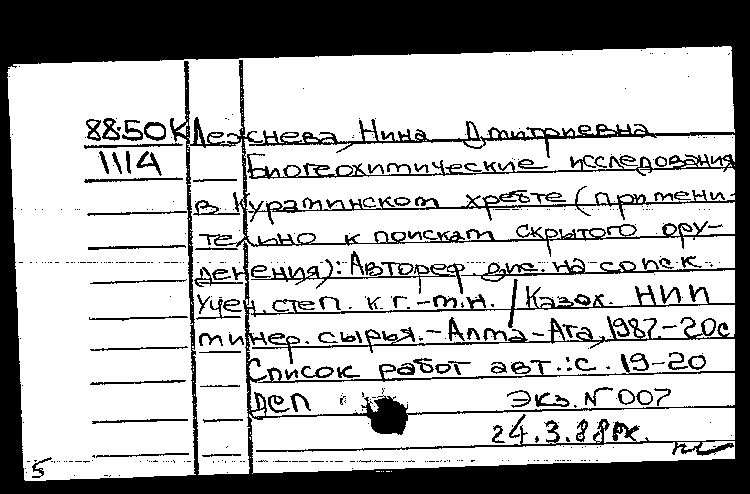 88:50К Лежнева, Нина Дмитриевна
1114 Биогеохимические исследования
в Кураминском хребте (примени-
тельно к поискам скрытого ору-
денения): Автореф. дис. на соиск.
учен. степ. к.г.-м.н. / Казах. НИИ
минер. сырья. - Алма-Ата, 1987. - 20с
Список работ авт.: с. 19-20
ДСП Экз. № 007
24.3.88
5